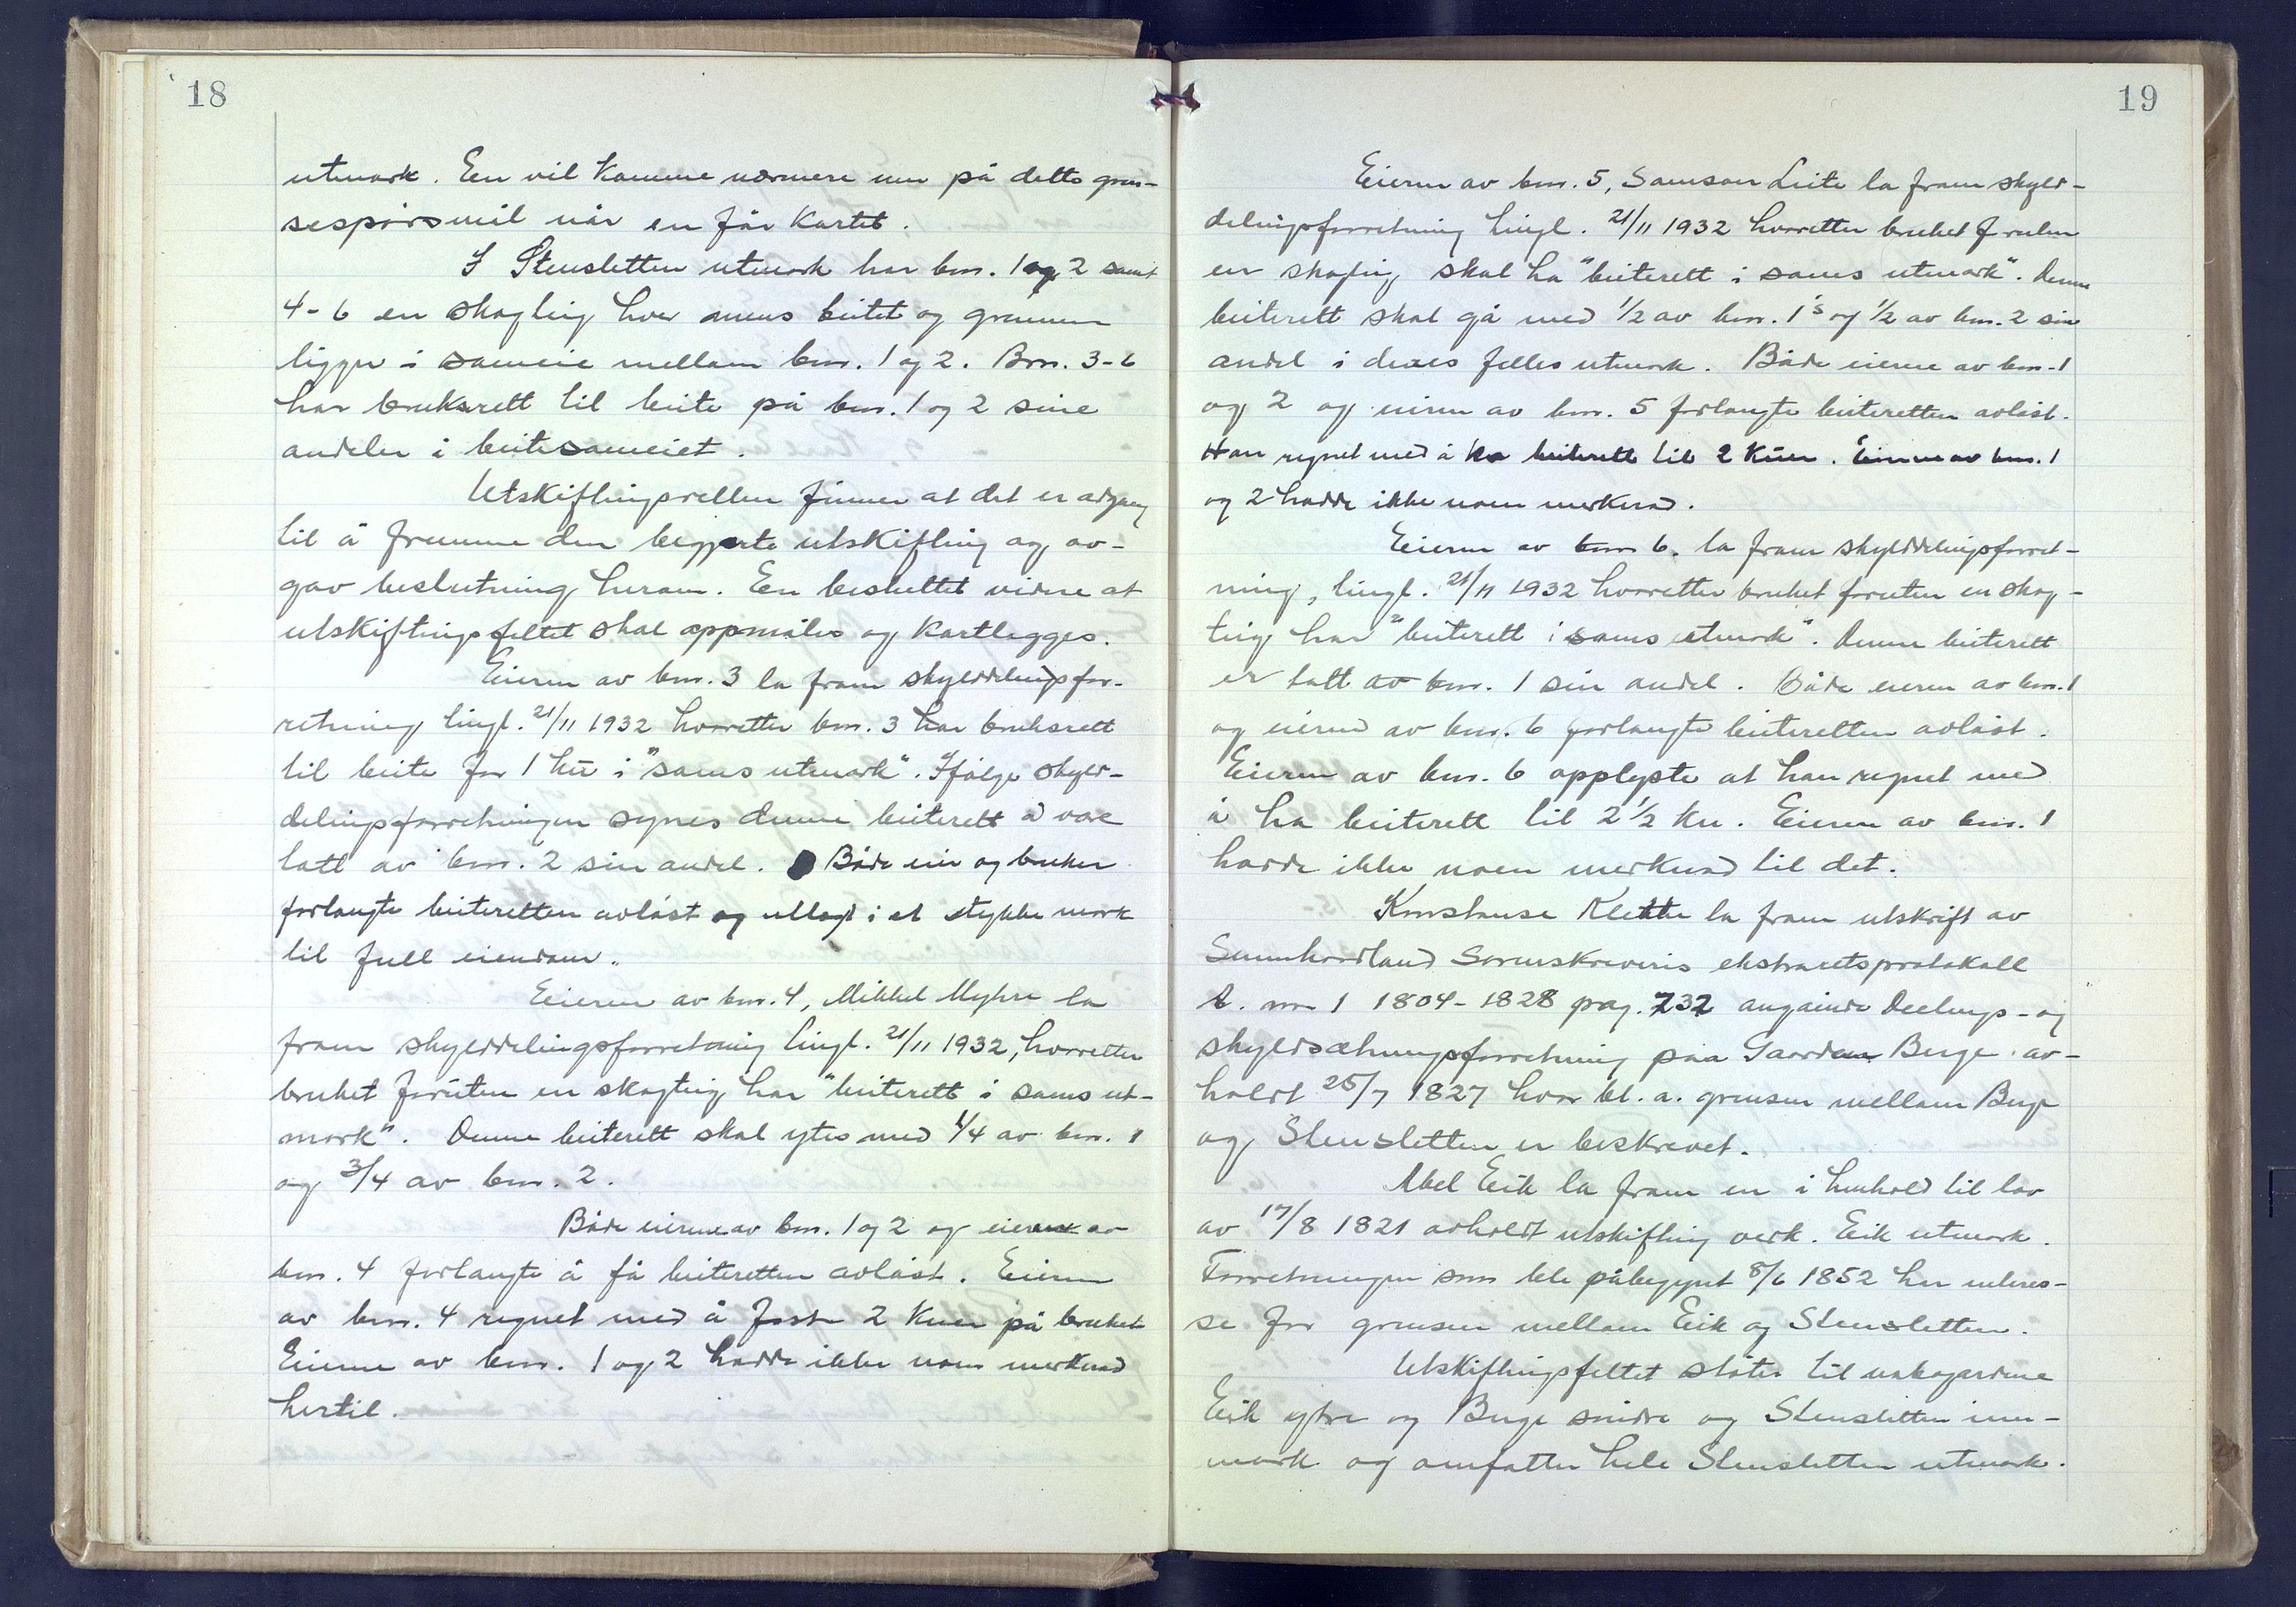 18
utmark. En vil komme nærmere inn på dette gren-
sespörsmål når en får kartet.
I Stensletten utmark har bnr. 1 og 2 samt
4-6 en skogteig hver mens beitet og grunnen
ligger i sameie mellom bnr. 1 og 2. Bnr. 3-6
har bruksrett til beite på bnr. 1 og 2 sine
andeler i beitesameiet.
Utskiftningsretten finner at det er adgang
til å fremme den begjærte utskifting og av-
gav beslutning herom. En besluttet videre at
utskiftningsfeltet skal oppmåles og kartlegges.
Eieren av bnr. 3 la fram skylddelingsfor-
retning tingl. 21/11 1932 hvoretter bnr. 3 har bruksrett
til beite for 1 ku i "sams utmark". Ifölge skyld-
delingsforretningen synes denne beiterett å være
tatt av bnr. 2 sin andel. Både eier og bruker
forlangte beiteretten avlöst og utlagt i et stykke mark
til full eiendom.
Eieren av bnr. 4, Mikkel Myhre la
fram skylddelingsforretning tingl. 21/11 1932, hvoretter
bruket foruten en skogteig har "beiterett i sams ut-
mark". Denne beiterett skal ytes med 1/4 av bnr. 1
og 3/4 av bnr. 2.
Både eierne av bnr. 1 og 2 og eieren av
bnr. 4 forlangte å få beiteretten avlöst. Eieren
av bnr. 4 regnet med å fostre 2 kuer på bruket
Eierne av bnr. 1 og 2 hadde ikke noen merknad
hertil.
19
Eieren av bnr. 5, Samson Leite la fram skyld-
delingsforretning tingl. 21/11 1932 hvoretter bruket foruten
en skogteig skal ha "beiterett i sams utmark". Denne
beiterett skal gå med 1/2 av bnr. 1's og 1/2 av bnr. 2 sin
andel i deres felles utmark. Både eierne av bnr. 1
og 2 og eieren av bnr. 5 forlangte beiteretten avlöst.
Han regnet med å ha beiterett til 2 kuer. Eierne av bnr. 1
og 2 hadde ikke noen merknad.
Eieren av bnr. 6. la fram skylddelingsforret-
ning, tingl. 21/11 1932 hvoretter bruket foruten en skog-
teig har "beiterett i sams utmark". Denne beiterett
er tatt av bnr. 1 sin andel. Både eieren av bnr. 1
og eieren av bnr. 6 forlangte beiteretten avlöst.
Eieren av bnr. 6 opplyste at han regnet med
å ha beiterett til 2 1/2 ku. Eieren av bnr. 1
hadde ikke noen merknad til det.
Konstanse Klette la fram utskrift av
Sunnhordland Sorenskriveris ekstraretsprotokoll
A. nr. 1 1804-1828 pag. 232 angående Deelings- og
skyldsætningsforretning paa Gaarden Berge av-
holdt 25/7 1827 hvor bl. a. grensen mellem Berge
og Stensletten er beskrevet.
Abel Eik la fram en i henhold til lov
av 17/8 1821 avholdt utskifting vedk. Eik utmark.
Forretningen som ble påbegynt 8/6 1852 har interes-
se for grensen mellom Eik og Stensletten.
Utskiftningsfeltet stöter til nabogardene
Eik ytre og Berge söndre og Stensletten inn-
mark og omfatter hele Stensletten utmark.